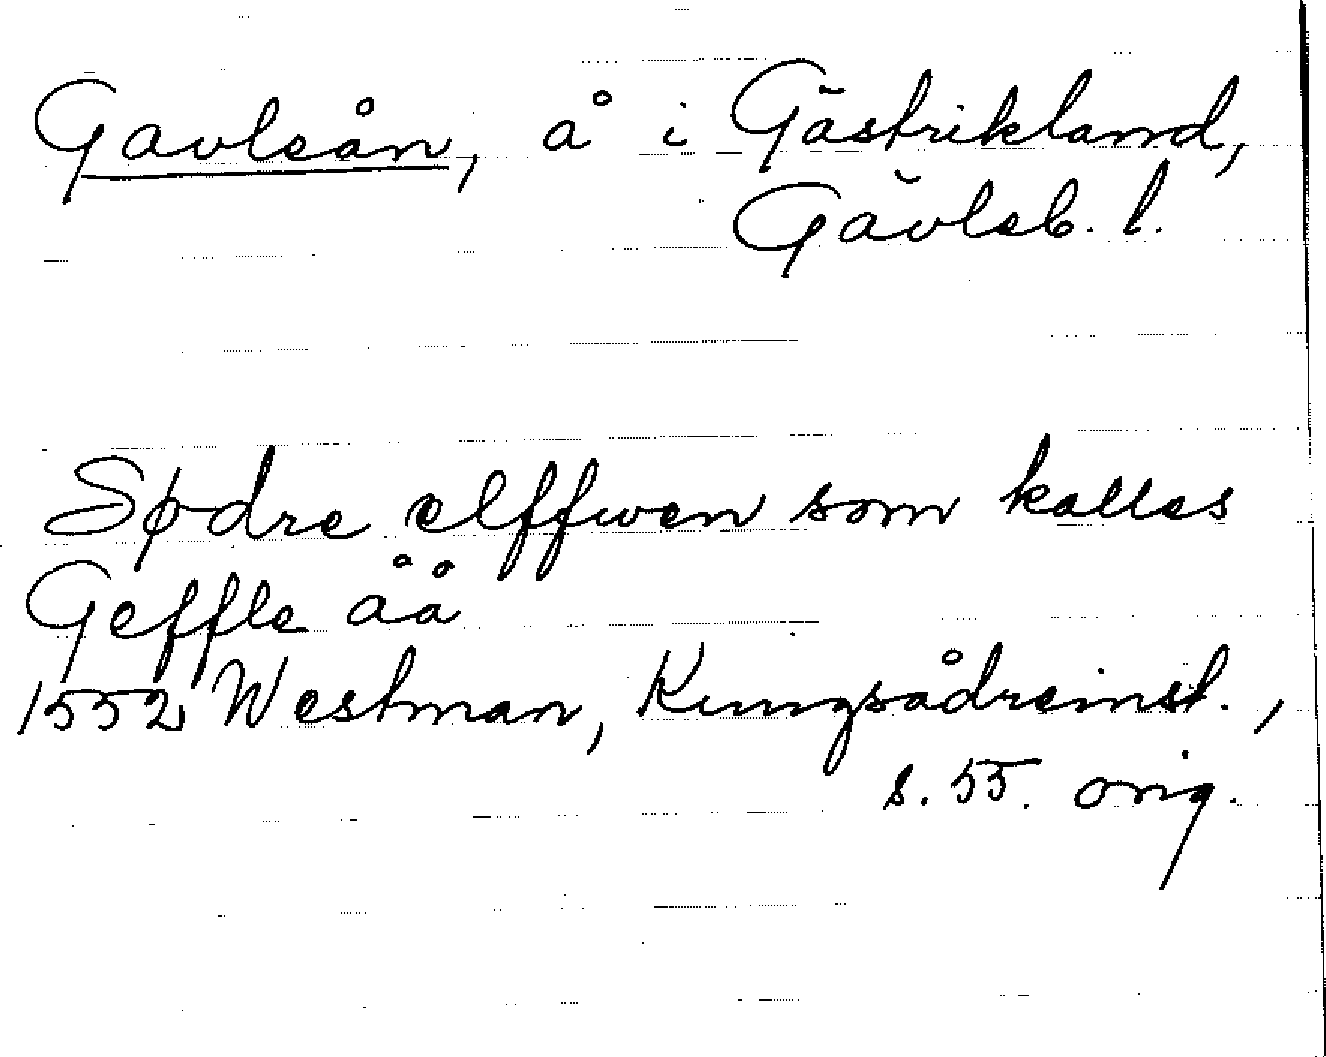 Gavleån, å i Gästrikland,
Gävleb. l.
Sødre elffwen som kalles
Geffle åå
1552 Westman, Kungsådreinst.,
s. 55. orig.